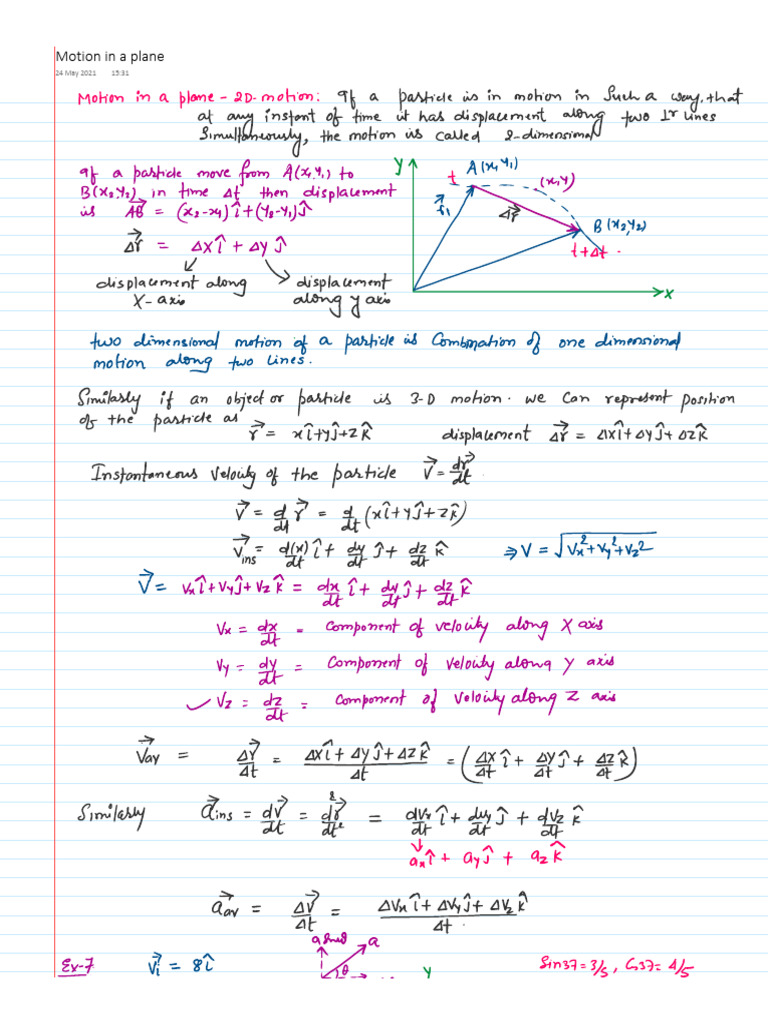 Motion in a plane
24 May 2021 15:31
Motion in a plane - 2D-motion: If a particle is in motion in such a way, that
at any instant of time it has displacement along two ⊥r lines
Simultaneously, the motion is called 2-dimensional
If a particle move from A(x₁,y₁) to
B(x₂,y₂) in time Δt then displacement
is AB⃗ = (x₂-x₁)î+(y₂-y₁)ĵ
Δr⃗ = Δxî + Δyĵ
displacement along X-axis
displacement along y axis
y
t
A(x₁,y₁)
(x,y)
r⃗₁
Δr⃗
B(x₂,y₂)
t+Δt
x
two dimensional motion of a particle is Combination of one dimensional
motion along two lines.
Similarly if an object or particle is 3-D motion. we can represent position
of the particle as
r⃗ = xî+yĵ+zk̂ displacement Δr⃗ = Δxî+Δyĵ+Δzk̂
Instantaneous velocity of the particle v⃗ = dr⃗/dt
v⃗ = d/dt r⃗ = d/dt (xî+yĵ+zk̂)
v⃗ins = d(x)/dt î + dy/dt ĵ + dz/dt k̂ ⇒ v = √(vx²+vy²+vz²)
v⃗ = vxî+vyĵ+vzk̂ = dx/dt î + dy/dt ĵ + dz/dt k̂
vx = dx/dt = Component of velocity along X axis
vy = dy/dt = Component of velocity along y axis
✓ vz = dz/dt = Component of velocity along Z axis
v⃗av = Δr⃗/Δt = (Δxî+Δyĵ+Δzk̂)/Δt = (Δx/Δt î + Δy/Δt ĵ + Δz/Δt k̂)
Similarly a⃗ins = dv⃗/dt = d²r⃗/dt² = dvx/dt î + dvy/dt ĵ + dvz/dt k̂
axî + ayĵ + azk̂
a⃗av = Δv⃗/Δt = (Δvxî+Δvyĵ+Δvzk̂)/Δt
a sinθ
a
Ex-7 v⃗i = 8î
θ
y
Sin37=3/5, Cos37=4/5